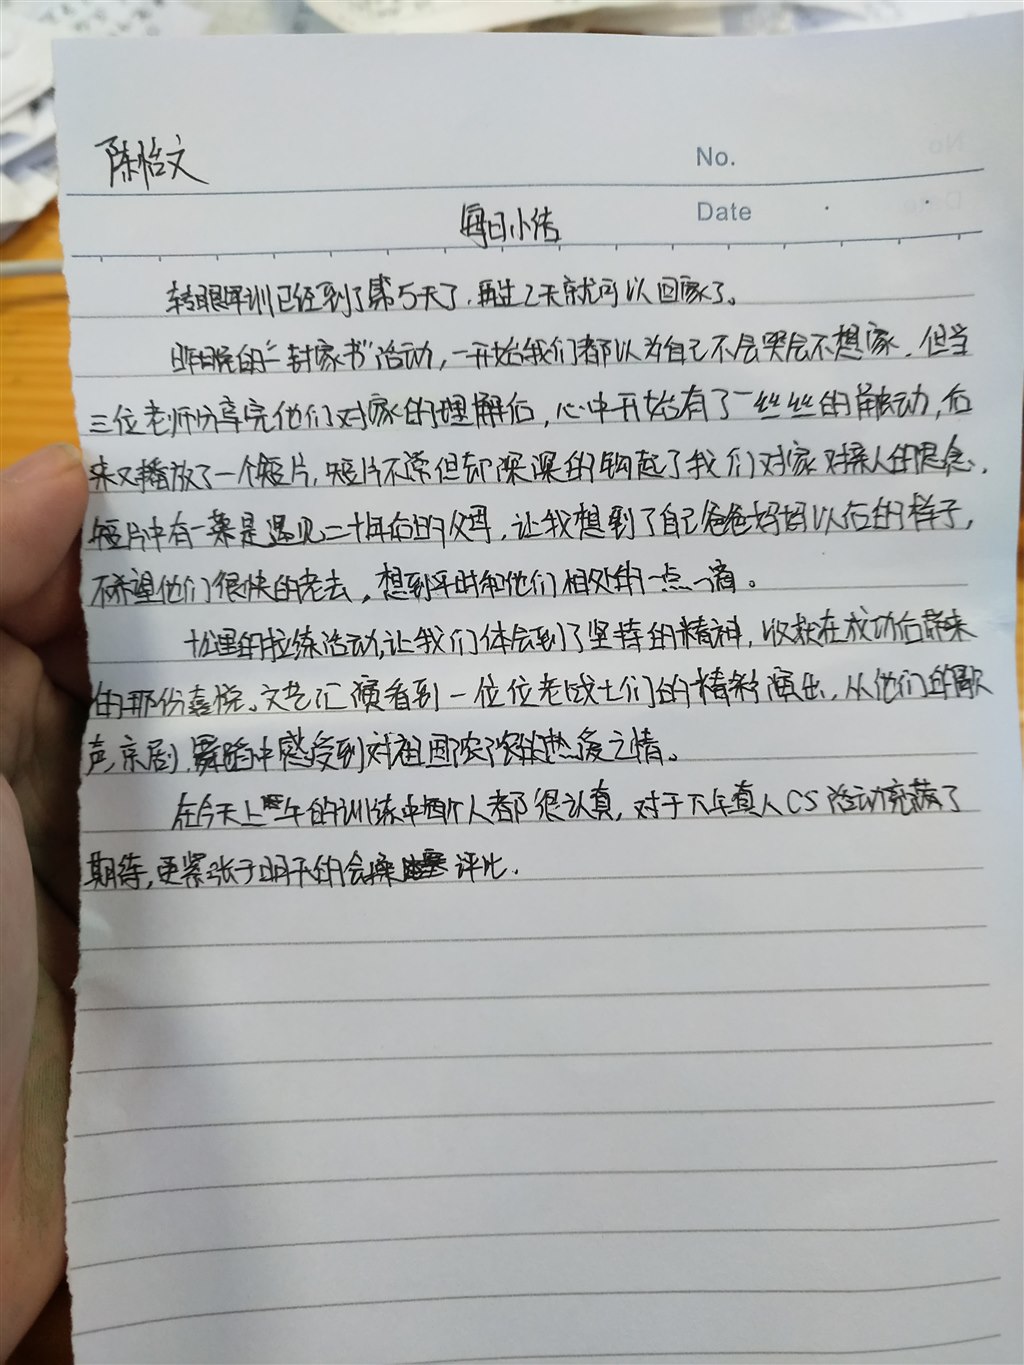 陈怡文
No.
每日小结
Date
转眼军训已经到了第5天了,再过2天就可以回家了。
昨晚的“一封家书”活动,一开始我们都以为自己不会哭会不想家,但当
三位老师分享完他们对家的理解后,心中开始有了一丝丝的触动,后
来又播放了一个短片,短片不常但却深深的钩起了我们对家对亲人的思念,
短片中有一幕是遇见二十年后的父母,让我想到了自己爸爸妈妈以后的样子,
不希望他们很快的老去,想到平时和他们相处的一点一滴。
十公里的拉练活动,让我们体会到了坚持的精神,收获在成功后带来
的那份喜悦。文艺汇演看到一位位老战士们的精彩演出,从他们的歌
声,京剧,舞蹈中感受到对祖国浓浓的热爱之情。
在今天上午的训练中每个人都很认真,对于下午真人CS活动充满了
期待,更紧张于明天的会操评比.